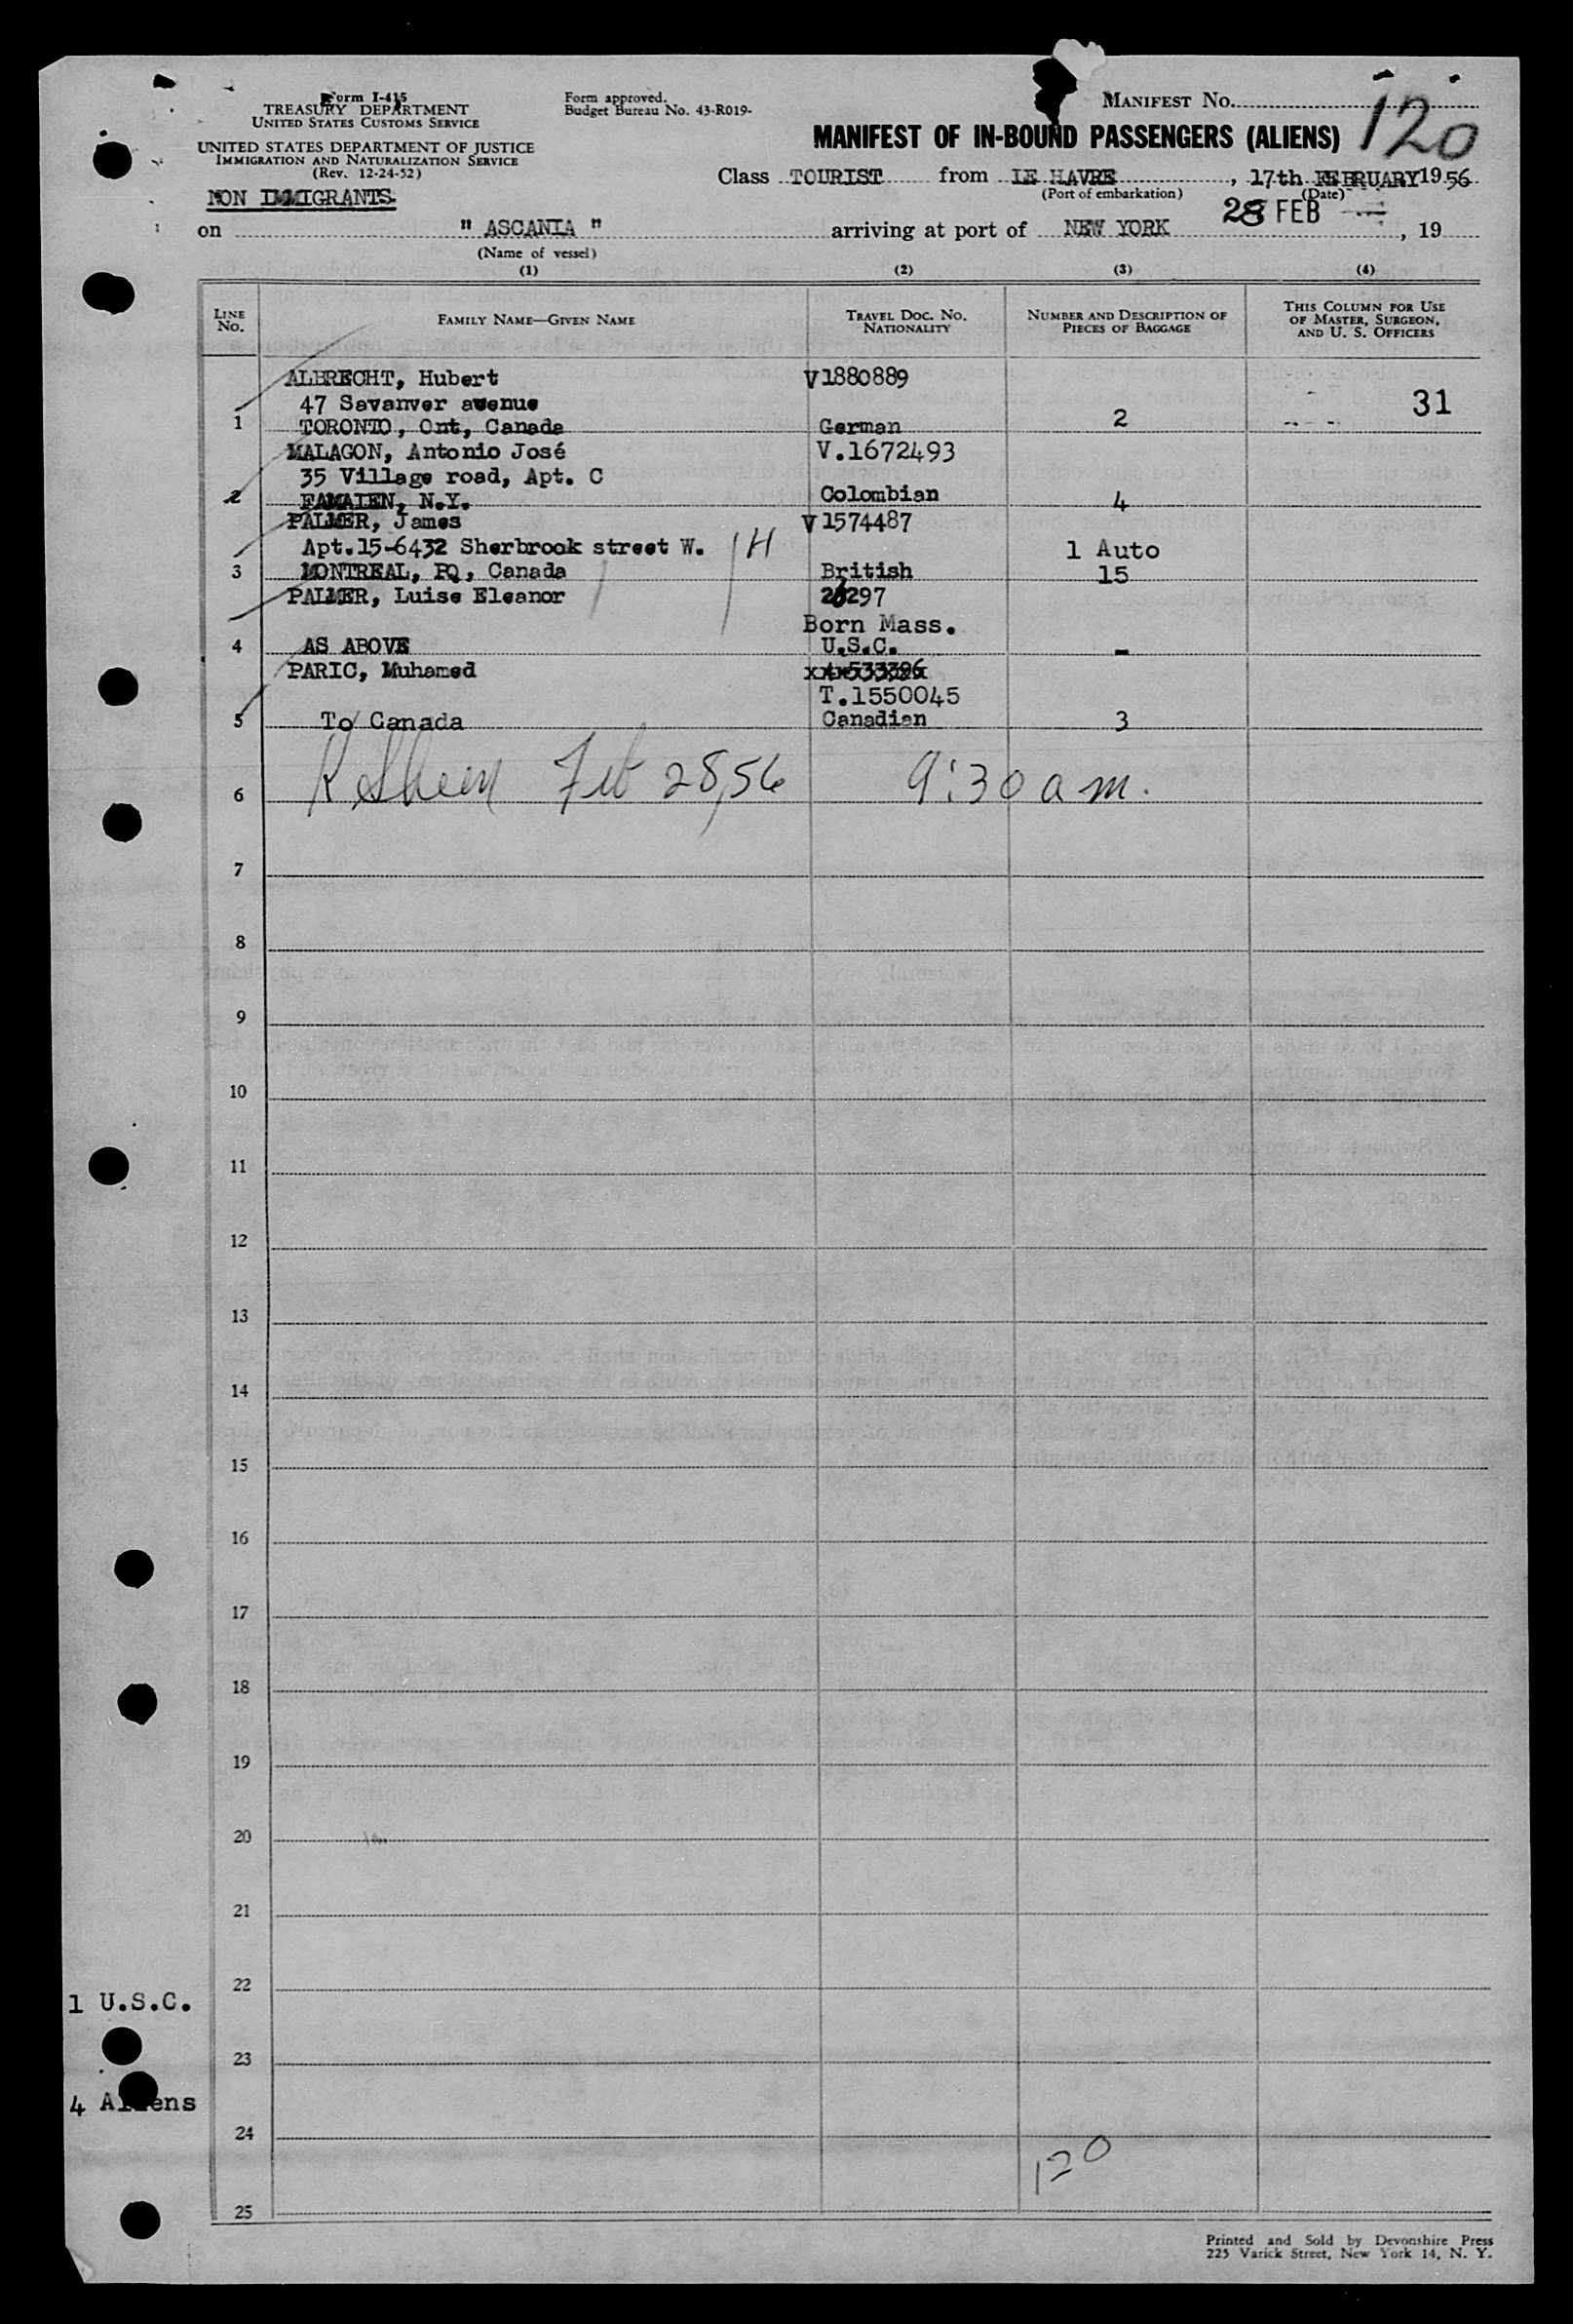 Form I-415
TREASURY DEPARTMENT
UNITED STATES CUSTOMS SERVICE
UNITED STATES DEPARTMENT OF JUSTICE
IMMIGRATION AND NATURALIZATION SERVICE
(Rev. 12-24-52)
NON IMMIGRANTS
Form approved.
Budget Bureau No. 43-R019-
MANIFEST No.
120
MANIFEST OF IN-BOUND PASSENGERS (ALIENS)
Class TOURIST from LE HAVRE, 17th FEBRUARY 1956
(Port of embarkation) (Date)
28 FEB
on " ASCANIA " arriving at port of NEW YORK, 19
(Name of vessel)
(1) (2) (3) (4)
LINE No. FAMILY NAME—GIVEN NAME TRAVEL DOC. NO. NATIONALITY NUMBER AND DESCRIPTION OF PIECES OF BAGGAGE THIS COLUMN FOR USE OF MASTER, SURGEON, AND U. S. OFFICERS
ALBRECHT, Hubert V1880889
47 Savanver avenue 31
1 TORONTO, Ont, Canada German 2
MALAGON, Antonio José V.1672493
35 Village road, Apt. C
2 N.Y. Colombian 4
PALMER, James V1574487
Apt.15-6432 Sherbrook street W. 1H 1 Auto
3 MONTREAL, PQ, Canada British 15
PALMER, Luise Eleanor 26297
Born Mass.
4 AS ABOVE U.S.C. -
PARIC, Muhamed
T.1550045
5 To Canada Canadian 3
6 Feb 28,56 9:30 am.
7
8
9
10
11
12
13
14
15
16
17
18
19
20
21
22
1 U.S.C.
23
4 Aliens
24
120
25
Printed and Sold by Devonshire Press
225 Varick Street, New York 14, N. Y.